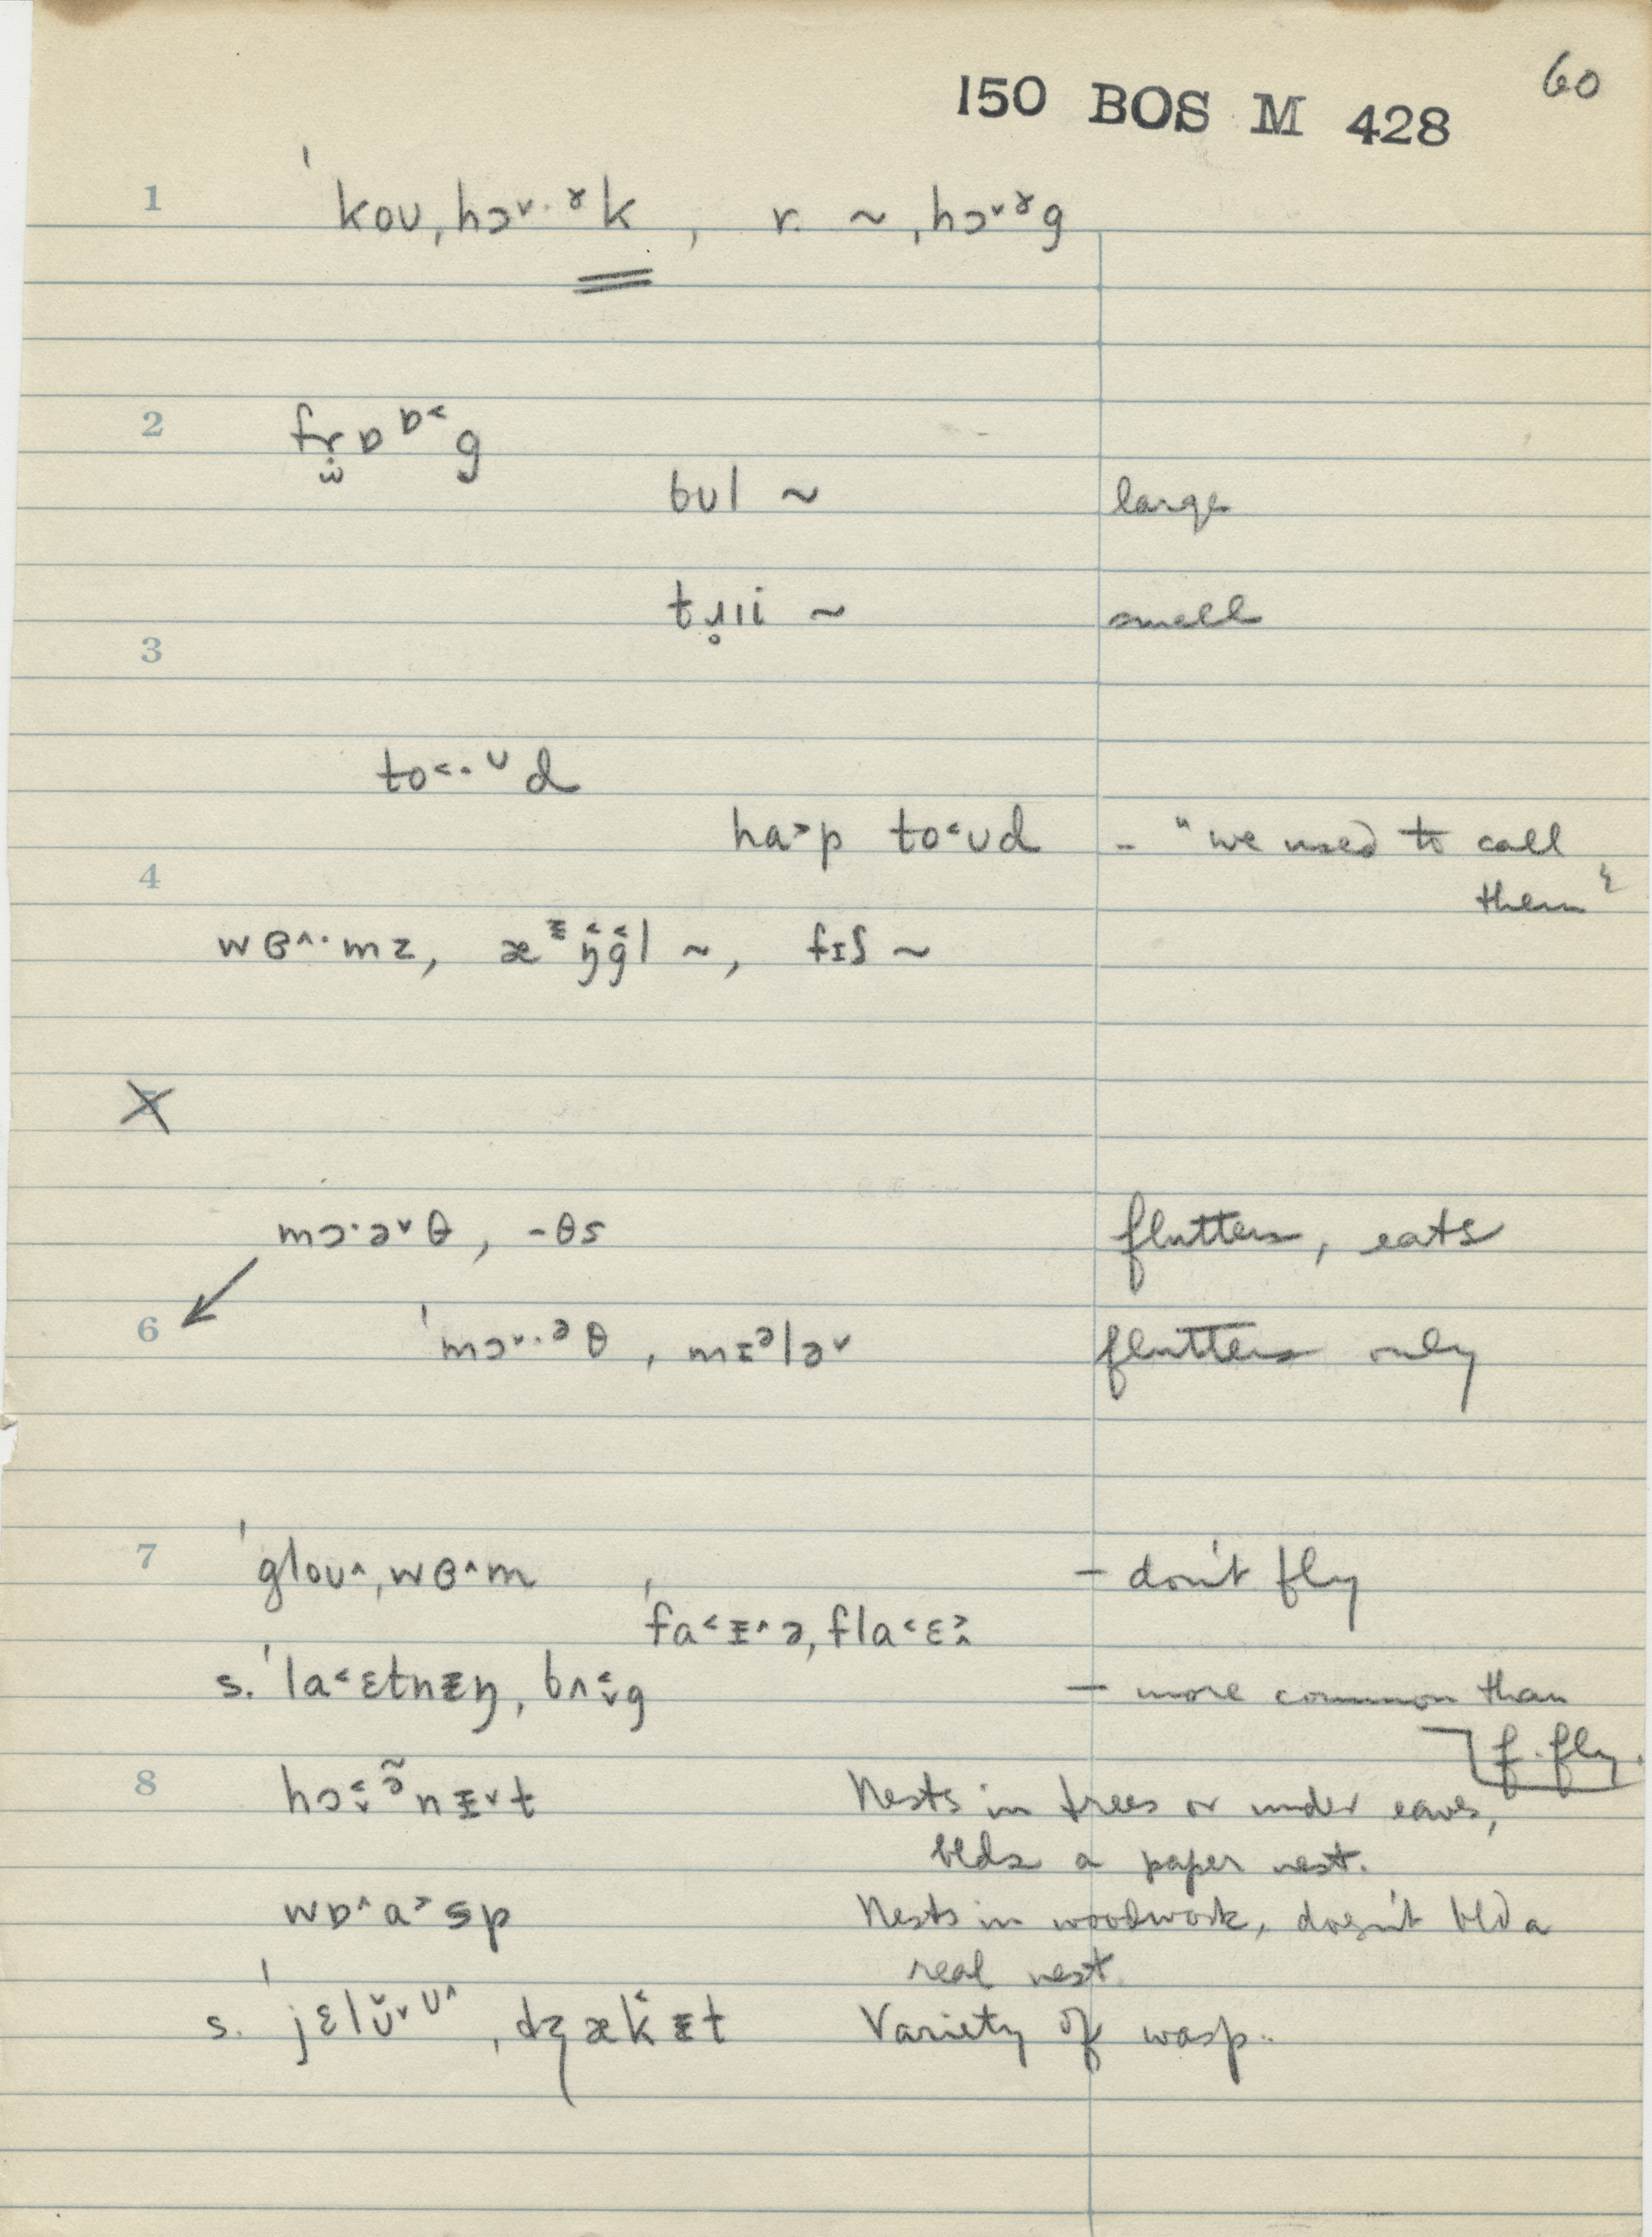 60
150 BOS M 428
1 ˈkoʊˌhɔ˅·ɤk, r. ~ˌhɔ˅ɤg
2 frɒɒ˂g
bʊl ~ large
tɹ̥ıi ~ small
3
to˂·ʊd
ha˃p to˂ʊd - "we used to call
them"
4
wɞ˄·mz, æᵻŋgl ~, fɪʃ ~
5
mɔ·ə˅θ, -θs flutters, eats
6 ˈmɔ˅·əθˌmɪələ˅ flutters only
7 ˈgloʊ˄ˌwɞ˄m - don't fly
ˈfa˂ᵻ˄əˌfla˂ɛ˃˄
s. ˈla˂ɛtnᵻŋˌbʌ˂˅g - more common than
f. fly.
8 hɔ˂˅ə̃nᵻ˅t Nests in trees or under eaves,
blds a paper nest.
wɒ˄a˃sp Nests in woodwork, doesn't bld a
real nest.
s. ˈjɛlʊ̆˅ʊ˄ˌdʒæk˂ᵻt Variety of wasp.